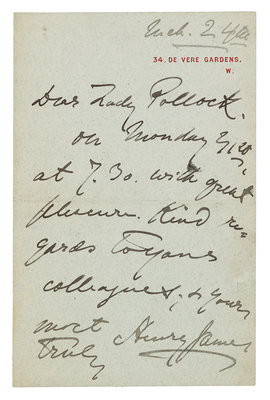 Mch. 24th
34, DE VERE GARDENS,
W.
Dear Lady Pollock.
on Monday
at 7.30. with great
pleasure. Kind re-
gards to your
colleagues, & yours
most
truly Henry James